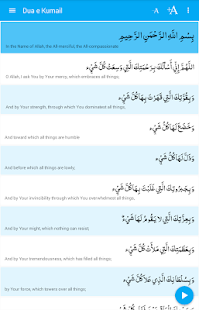 Dua e Kumail
-A +A
بِسْمِ اللّٰهِ الرَّحْمٰنِ الرَّحِيْمِ
In the Name of Allah, the All-merciful, the All-compassionate
اَللّٰهُمَّ اِنِّيْ اَسْاَلُكَ بِرَحْمَتِكَ الَّتِيْ وَسِعَتْ كُلَّ شَيْءٍ
O Allah, I ask You by Your mercy, which embraces all things;
وَبِقُوَّتِكَ الَّتِيْ قَهَرْتَ بِهَا كُلَّ شَيْءٍ
And by Your strength, through which You dominated all things,
وَخَضَعَ لَهَا كُلُّ شَيْءٍ
And toward which all things are humble
وَذَلَّ لَهَا كُلُّ شَيْءٍ
And before which all things are lowly;
وَبِجَبَرُوْتِكَ الَّتِيْ غَلَبْتَ بِهَا كُلَّ شَيْءٍ
And by Your invincibility through which You overwhelmed all things,
وَبِعِزَّتِكَ الَّتِيْ لَا يَقُوْمُ لَهَا شَيْءٌ
And by Your might, which nothing can resist;
وَبِعَظَمَتِكَ الَّتِيْ مَلَأَتْ كُلَّ شَيْءٍ
And by Your tremendousness, which has filled all things;
وَبِسُلْطَانِكَ الَّذِيْ عَلَا كُلَّ شَيْءٍ
by Your force, which towers over all things;